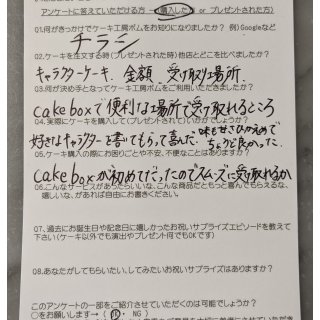 アンケートに答えていただける方→(購入した方 or プレゼントされた方)
Q1.何がきっかけでケーキ工房ボムをお知りになりましたか? 例)Googleなど
チラシ
Q2.ケーキを注文する時(プレゼントされた時)他店とどこを比べましたか?
キャラクターケーキ、金額、受け取り場所
Q3.何が決め手となってケーキ工房ボムをご利用いただきましたか?
cake boxで便利な場所で受け取れるところ
Q4.実際にケーキを購入して(プレゼントされて)いかがでしょうか?
好きなキャラクターを書いてもらって喜んだ、味も甘さひかえめで
ちょうど良かった。
Q5.ケーキ購入の際にお困りごとや不安、不便なことはありますか?
cake boxが初めてだったのでスムーズに受け取れるか
Q6.こんなサービスがあったらいいな、こんな商品だともっと喜んでもらえるな、
嬉しいな、があれば自由にお書きください。
Q7.過去にお誕生日や記念日に嬉しかったお祝いサプライズエピソードを教えて
下さい(ケーキ以外でも演出やプレゼント何でもOKです)
Q8.あなたがしてもらいたい、してみたいお祝いサプライズはありますか?
このアンケートの一部をご紹介させていただくのは可能でしょうか?
○をお願いします→( OK ・ NG )